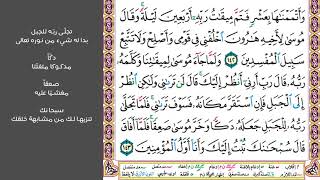 وَأَتْمَمْنَٰهَا بِعَشْرٍ فَتَمَّ مِيقَٰتُ رَبِّهِۦٓ أَرْبَعِينَ لَيْلَةً ۚ وَقَالَ
مُوسَىٰ لِأَخِيهِ هَٰرُونَ ٱخْلُفْنِى فِى قَوْمِى وَأَصْلِحْ وَلَا تَتَّبِعْ
سَبِيلَ ٱلْمُفْسِدِينَ ١٤٢ وَلَمَّا جَآءَ مُوسَىٰ لِمِيقَٰتِنَا وَكَلَّمَهُۥ
رَبُّهُۥ قَالَ رَبِّ أَرِنِىٓ أَنظُرْ إِلَيْكَ ۚ قَالَ لَن تَرَىٰنِى وَلَٰكِنِ ٱنظُرْ
إِلَى ٱلْجَبَلِ فَإِنِ ٱسْتَقَرَّ مَكَانَهُۥ فَسَوْفَ تَرَىٰنِى ۚ فَلَمَّا تَجَلَّىٰ
رَبُّهُۥ لِلْجَبَلِ جَعَلَهُۥ دَكًّا وَخَرَّ مُوسَىٰ صَعِقًا ۚ فَلَمَّآ أَفَاقَ
قَالَ سُبْحَٰنَكَ تُبْتُ إِلَيْكَ وَأَنَا۠ أَوَّلُ ٱلْمُؤْمِنِينَ ١٤٣
تجلّى ربّه للجبل
بدا له شيء من نوره تعالى
دكّاً
مدكوكا مفتّتا
صعقاً
مغشيّا عليه
سبحانك
تنزيها لك من مشابهة خلقك